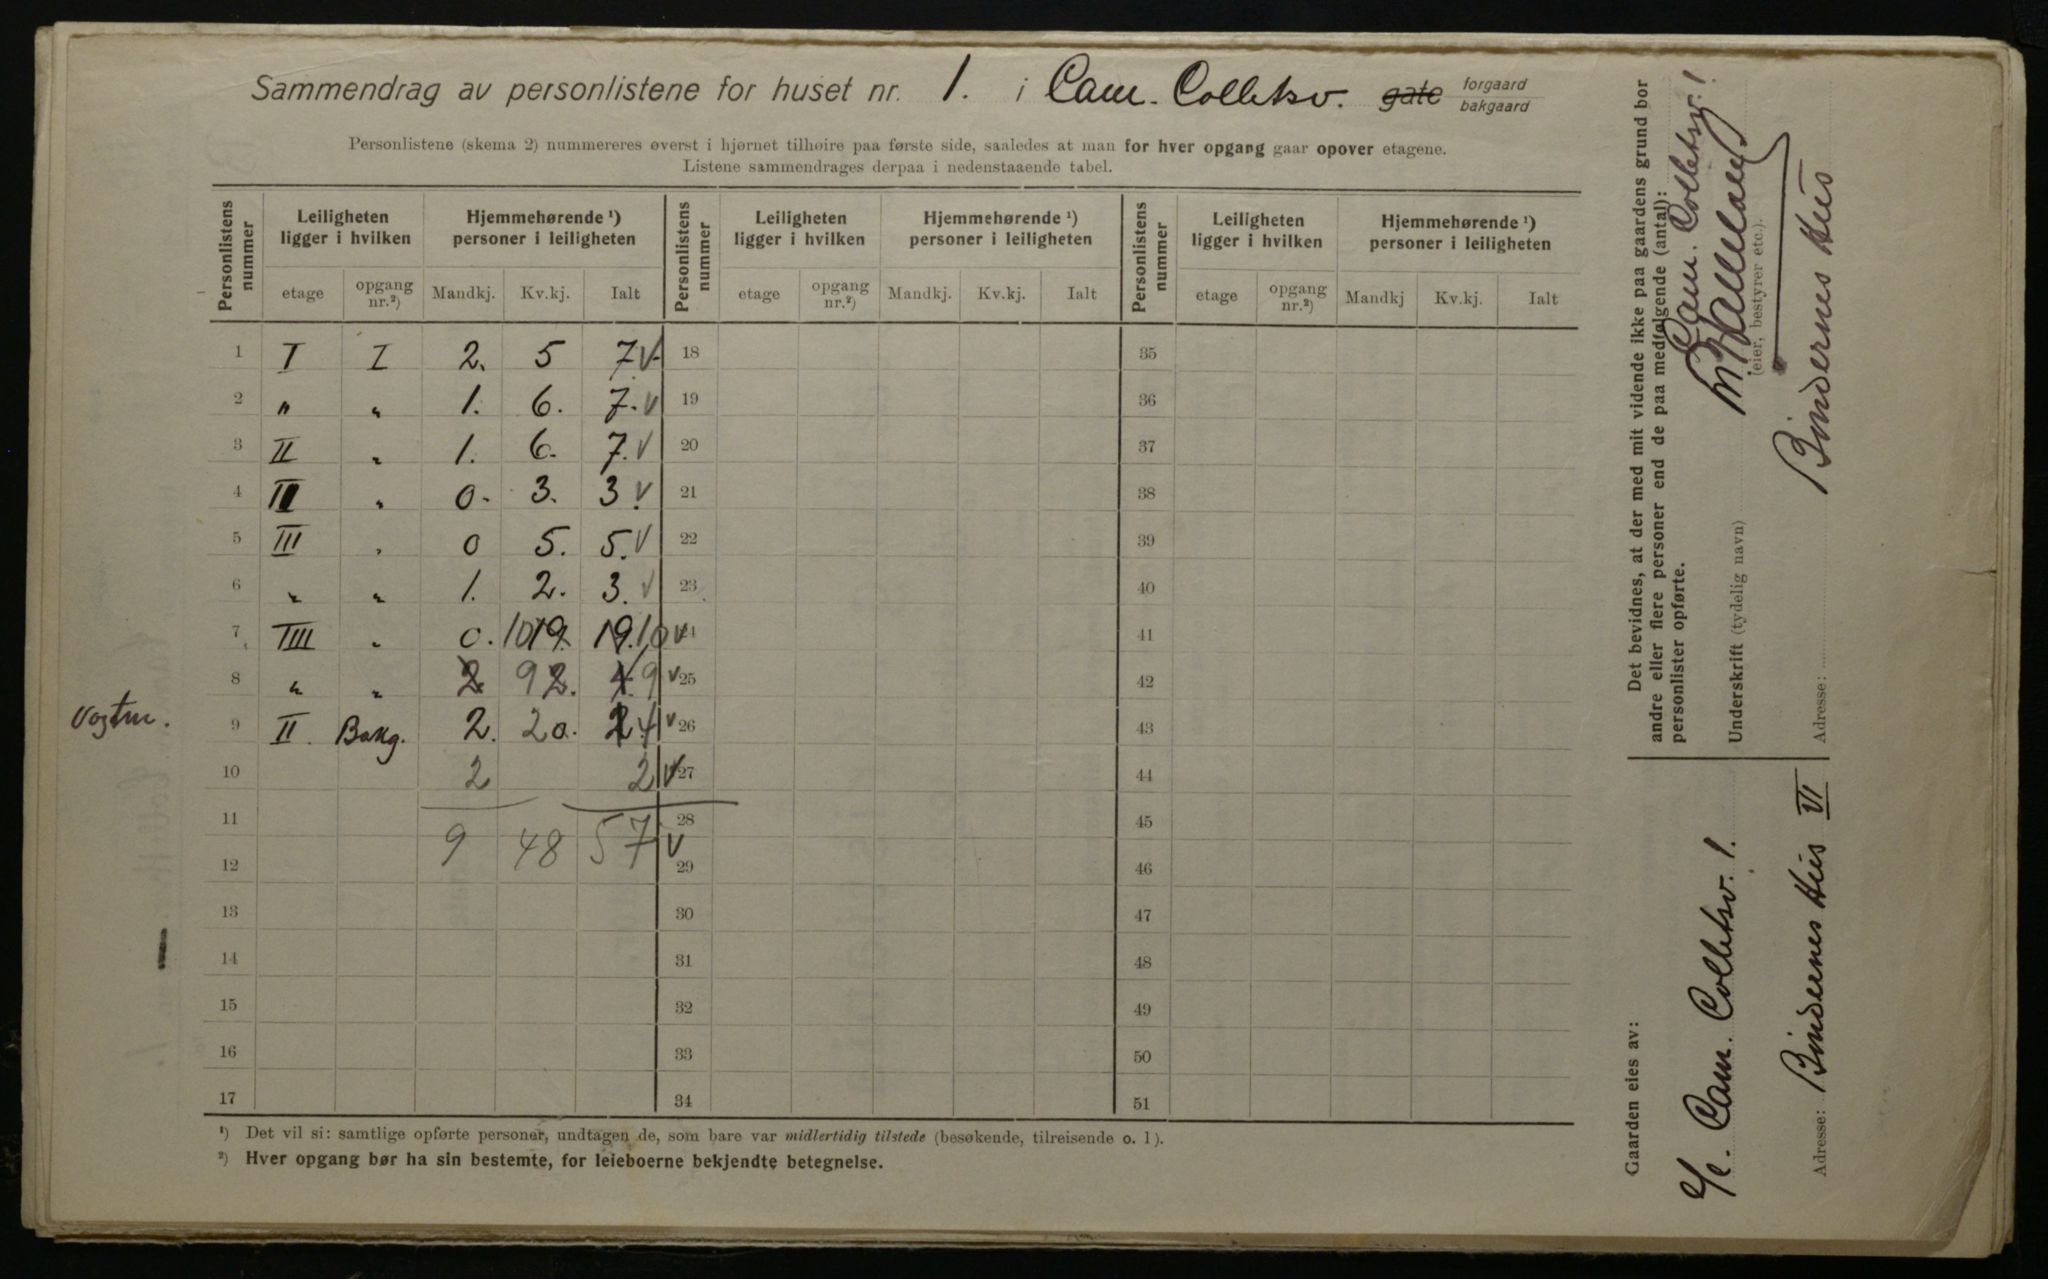 Sammendrag av personlistene for huset nr. 1. i Cam. Colletsv. gate forgaard bakgaard
Personlistene (skema 2) nummereres øverst i hjørnet tilhøire paa første side, saaledes at man for hver opgang gaar opover etagene.
Listene sammendrages derpaa i nedenstaaende tabel.
Personlistens nummer Leiligheten ligger i hvilken Hjemmehørende ¹) personer i leiligheten Personlistens nummer Leiligheten ligger i hvilken Hjemmehørende ¹) personer i leiligheten Personlistens nummer Leiligheten ligger i hvilken Hjemmehørende ¹) personer i leiligheten
etage opgang nr.²) Mandkj. Kv.kj. Ialt etage opgang nr.²) Mandkj. Kv.kj. Ialt etage opgang nr.²) Mandkj Kv.kj. Ialt
1 I I 2. 5 7 v 18 35
2 " " 1. 6. 7. v 19 36
3 II " 1. 6. 7. v 20 37
4 II " 0. 3. 3. v 21 38
5 III " 0 5. 5. v 22 39
6 " " 1. 2. 3. v 23 40
7 IIII " 0. 10 19. 19. 10 v 24 41
8 " " 2 9 2. 4. 9 v 25 42
9 II. Bakg. 2. 2 0. 2. 4 v 26 43
10 2 2 v 27 44
11 28 45
9 48 57 v
12 29 46
13 30 47
14 31 48
15 32 49
16 33 50
17 34 51
¹) Det vil si: samtlige opførte personer, undtagen de, som bare var midlertidig tilstede (besøkende, tilreisende o. l).
²) Hver opgang bør ha sin bestemte, for leieboerne bekjendte betegnelse.
Det bevidnes, at der med mit vidende ikke paa gaardens grund bor
andre eller flere personer end de paa medfølgende (antal):
personlister opførte.
Cam. Colletsv. 1.
Underskrift (tydelig navn)
(eier, bestyrer etc.).
Adresse:
Bindernes Hus
Gaarden eies av:
Cam. Colletsv. 1.
Adresse: Bindernes Hus VI